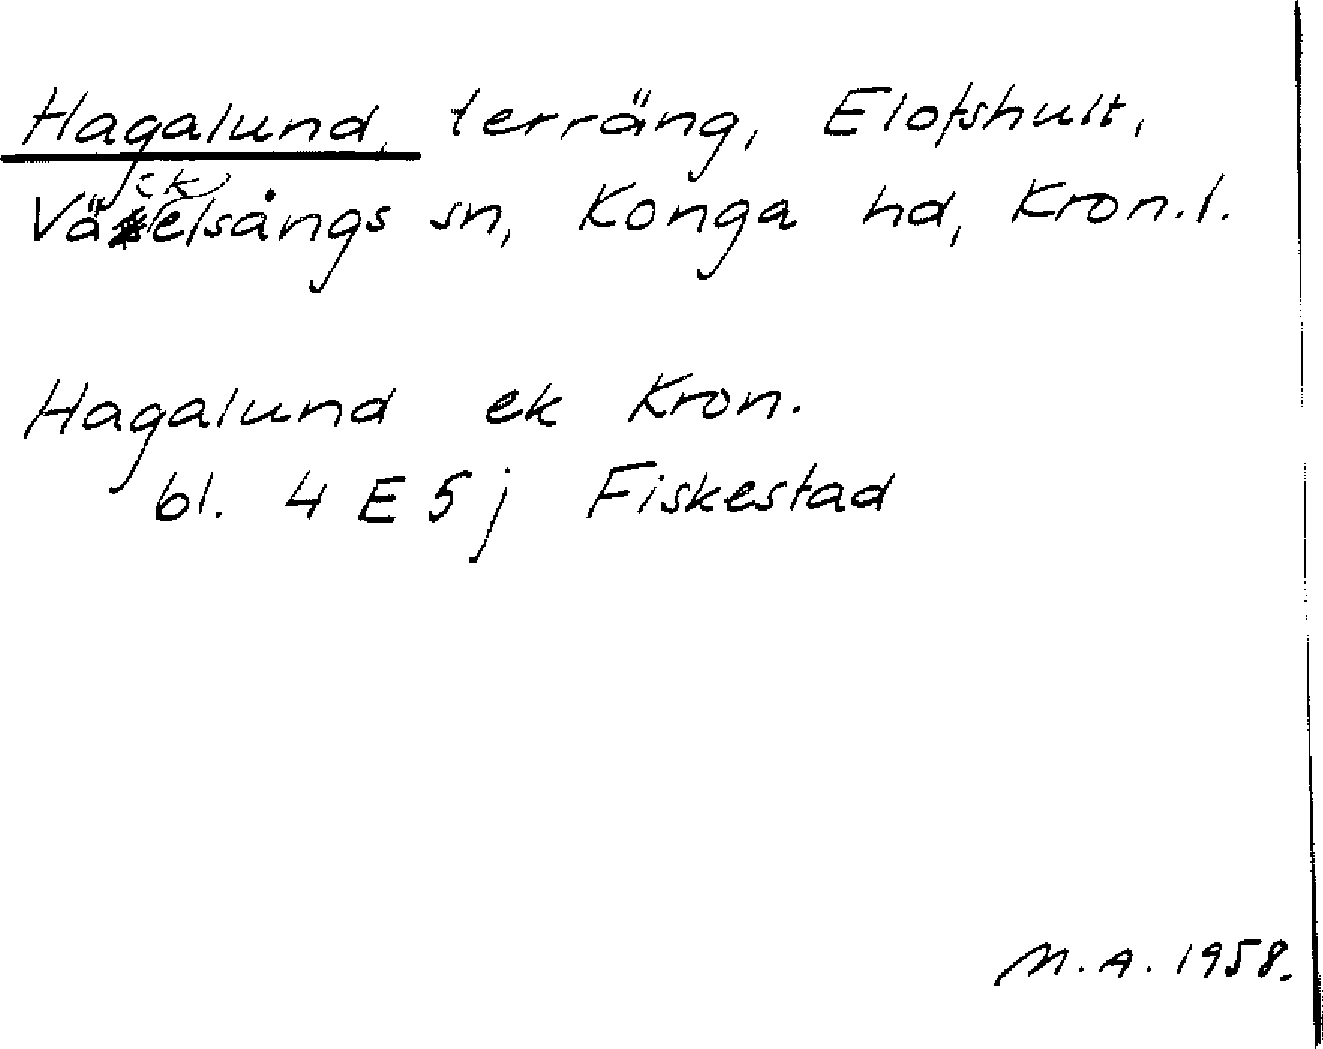 Hagalund, terräng, Elofshult,
Väckelsångs sn, Konga hd, Kron.l.
Hagalund ek Kron.
bl. 4 E 5 j Fiskestad
M.A. 1958.